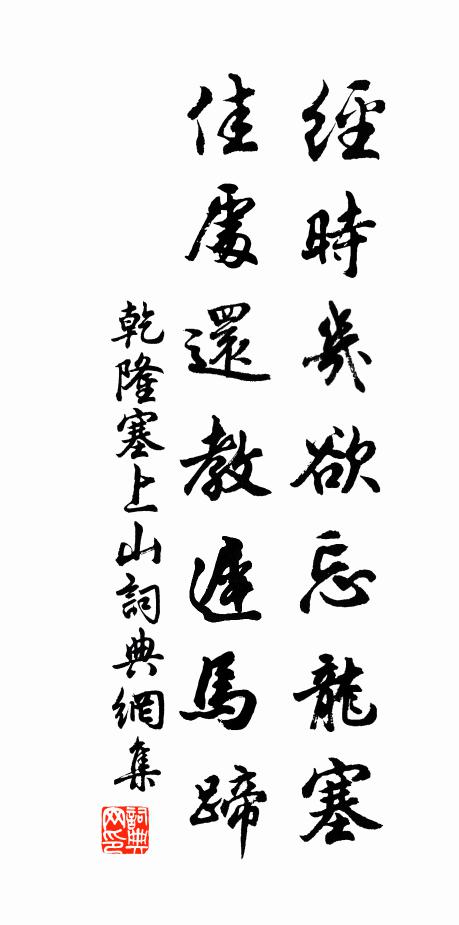 經時幾欲忘龍塞
佳處還教遲馬蹄
乾隆塞上山詞典網集
詞典網印